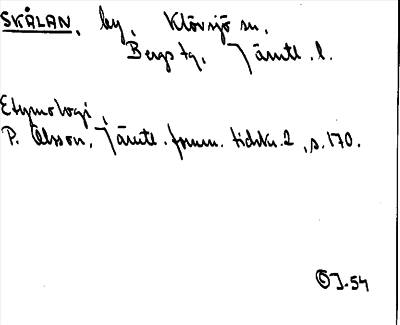 SKÅLAN, by, Klövsjö sn,
Bergs tg, Jämtl. l.
Etymologi,
P. Olsson, Jämtl. fornm. tidskr. 2, s. 170.
J-54